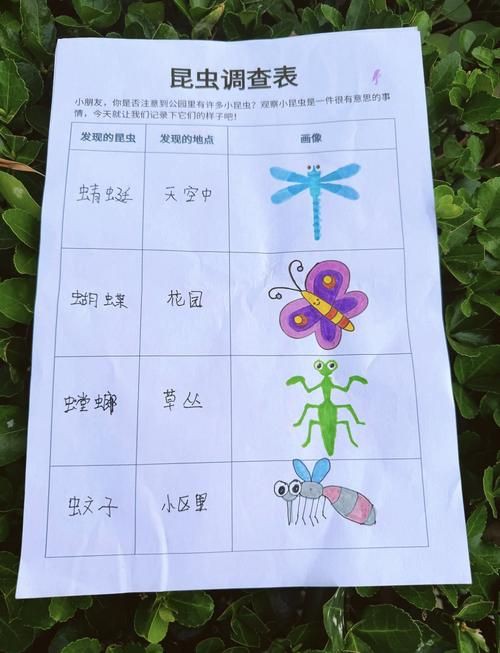 昆虫调查表
小朋友，你是否注意到公园里有许多小昆虫？观察小昆虫是一件很有意思的事
情，今天就让我们记录下它们的样子吧！
发现的昆虫 发现的地点 画像
蜻蜓 天空中
蝴蝶 花园
螳螂 草丛
蚊子 小区里